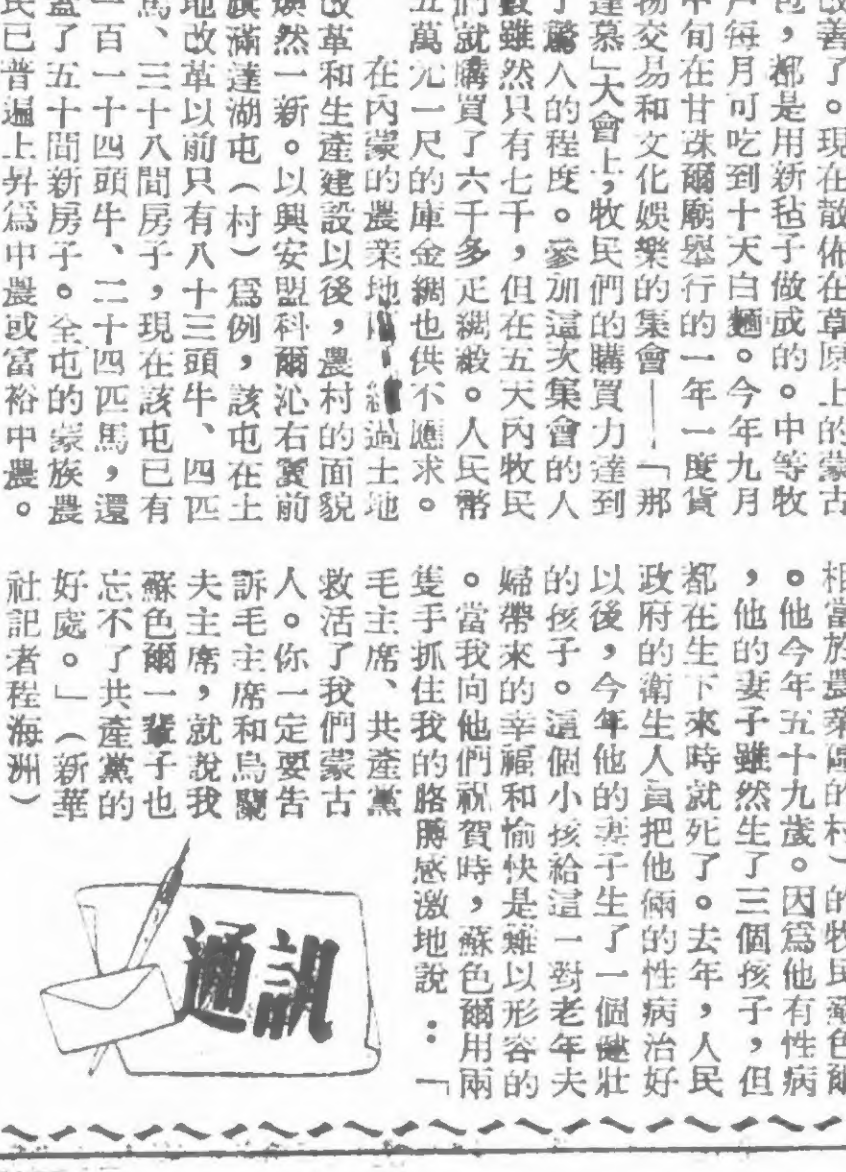 改善了。現在散佈在草原上的蒙古
包，都是用新毡子做成的。中等牧
戶每月可吃到十天白麵。今年九月
中旬在甘珠爾廟舉行的一年一度貨
物交易和文化娛樂的集會——「那
達慕」大會上，牧民們的購買力達到
了驚人的程度。參加這次集會的人
數雖然只有七千，但在五天內牧民
們就購買了六千多疋綢緞。人民幣
五萬元一尺的庫金綢也供不應求。
在內蒙的農業地　經過土地
改革和生產建設以後，農村的面貌
煥然一新。以興安盟科爾沁右翼前
旗滿達湖屯（村）爲例，該屯在土
地改革以前只有八十三頭牛、四匹
馬、三十八間房子，現在該屯已有
一百一十四頭牛、二十四匹馬，還
蓋了五十間新房子。全屯的蒙族農
民已普遍上昇爲中農或富裕中農。
相當於農業區的村）的牧民蘇色爾
。他今年五十九歲。因爲他有性病
，他的妻子雖然生了三個孩子，但
都在生下來時就死了。去年，人民
政府的衛生人員把他倆的性病治好
以後，今年他的妻子生了一個健壯
的孩子。這個小孩給這一對老年夫
婦帶來的幸福和愉快是難以形容的
。當我向他們祝賀時，蘇色爾用兩
隻手抓住我的胳膊感激地說：「
毛主席、共產黨
救活了我們蒙古
人。你一定要告
訴毛主席和烏蘭
夫主席，就說我
蘇色爾一輩子也
忘不了共產黨的
好處。」（新華
社記者程海洲）
通訊